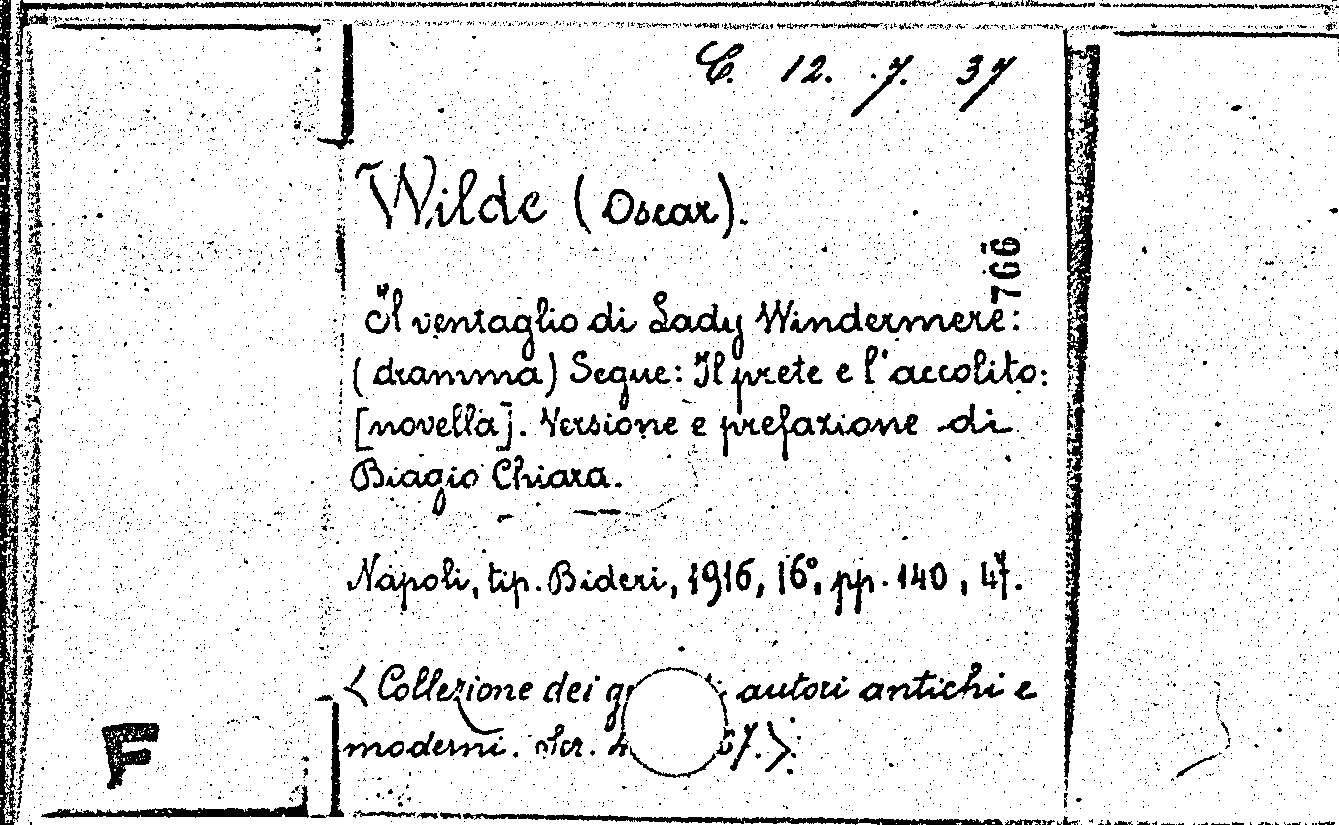 C. 12. 7. 37
Wilde (Oscar).
766
Il ventaglio di Lady Windermere:
(dramma) Segue: Il prete e l'accolito:
[novella]. Versione e prefazione di
Biagio Chiara.
Napoli, tip. Bideri, 1916, 16°, pp. 140, 47.
<Collezione dei autori antichi e
moderni. 67.>
F